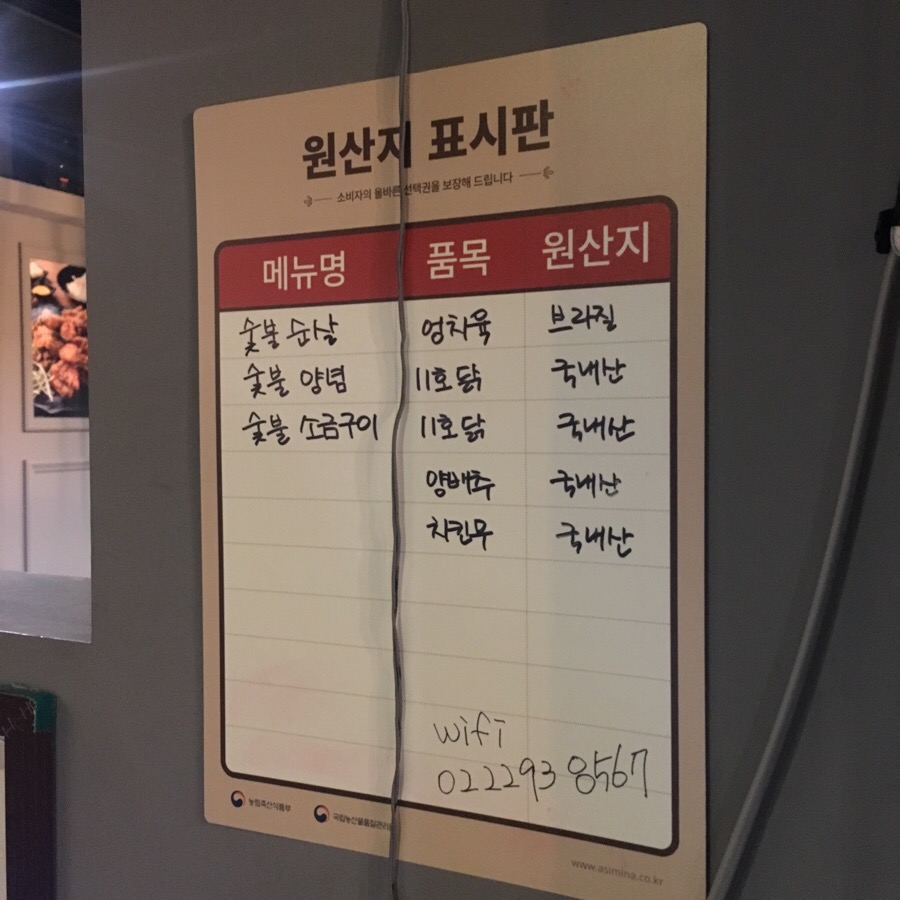 원산지 표시판
소비자의 올바른 선택권을 보장해 드립니다
메뉴명 품목 원산지
숯불 순살 엉치육 브라질
숯불 양념 11호 닭 국내산
숯불 소금구이 11호 닭 국내산
양배추 국내산
치킨무 국내산
wifi
022293 8567
농림축산식품부 국립농산물품질관리
www.asimina.co.kr